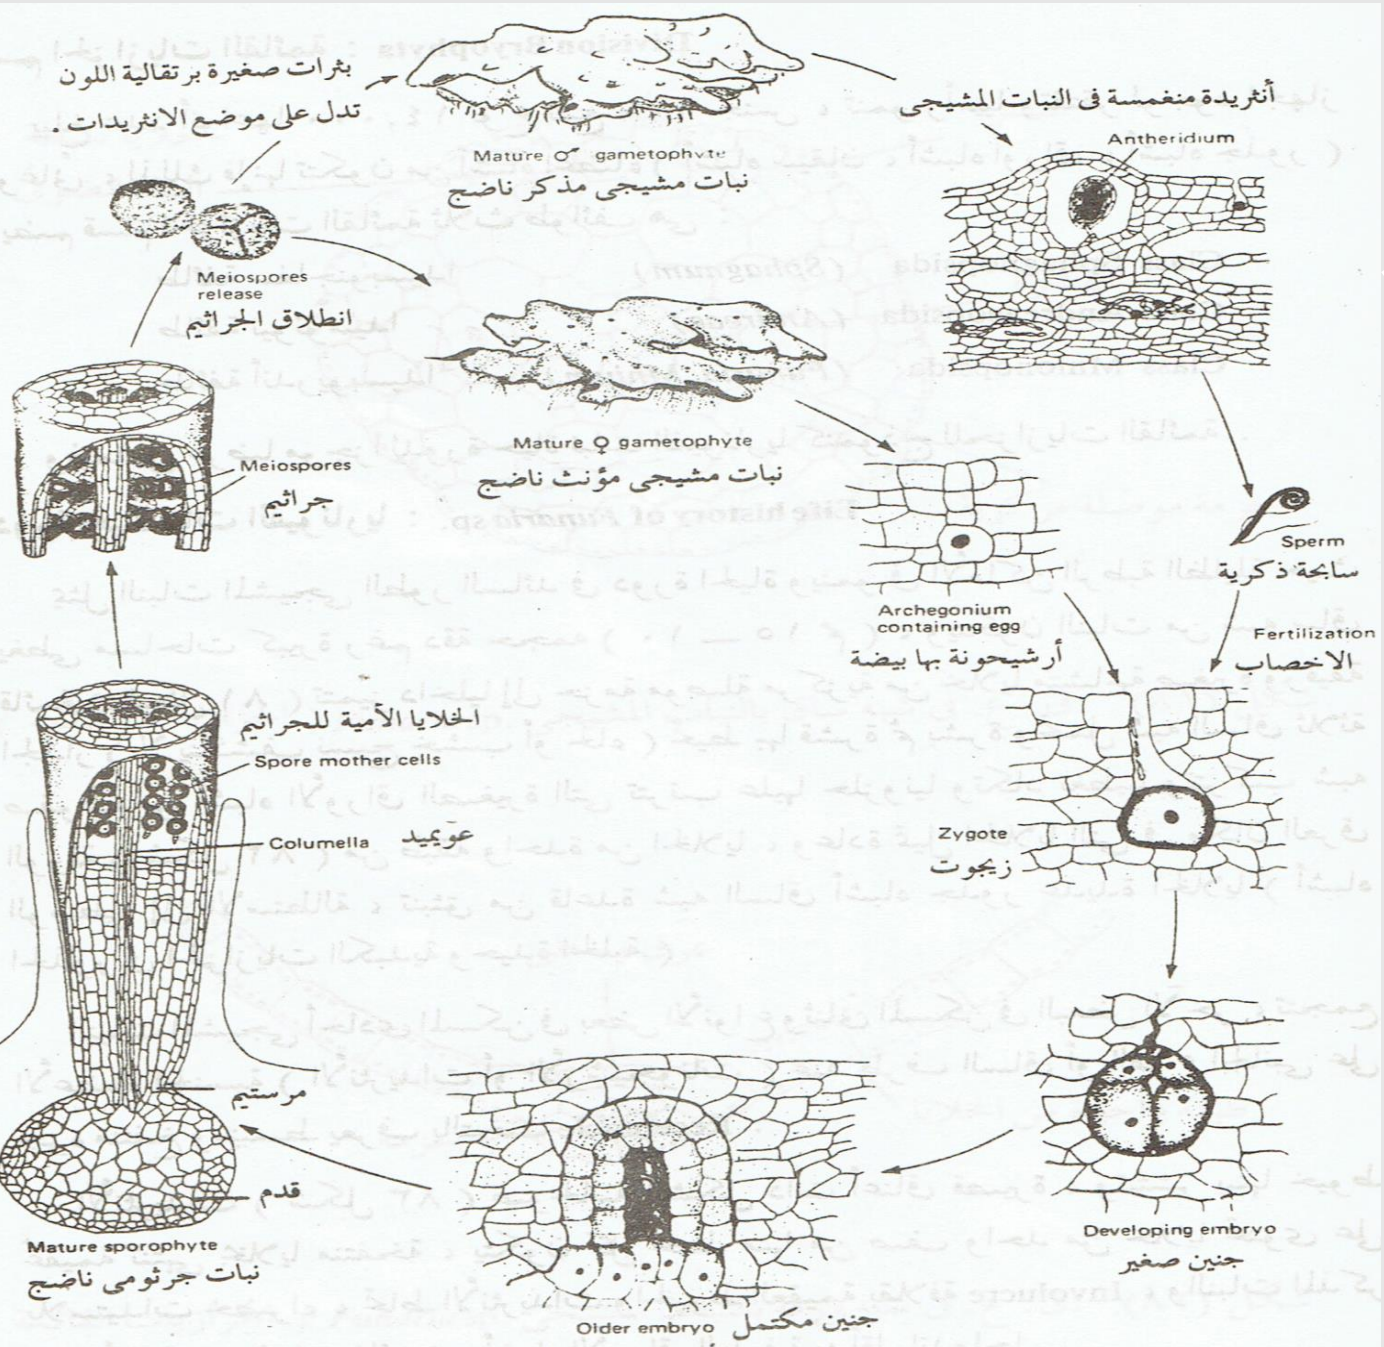 بثرات صغيرة برتقالية اللون
تدل على موضع الانثريدات .
Mature ♂ gametophyte
نبات مشيجى مذكر ناضج
أنثريدة منغمسة فى النبات المشيجى
Antheridium
Meiospores
release
انطلاق الجراثيم
Mature ♀ gametophyte
نبات مشيجى مؤنث ناضج
Meiospores
جراثيم
Sperm
سابحة ذكرية
Archegonium
containing egg
أرشيجونة بها بيضة
Fertilization
الاخصاب
الخلايا الأمية للجراثيم
Spore mother cells
Columella
عويميد
Zygote
زيجوت
مرستيم
قدم
Mature sporophyte
نبات جرثومى ناضج
Developing embryo
جنين صغير
Older embryo جنين مكتمل